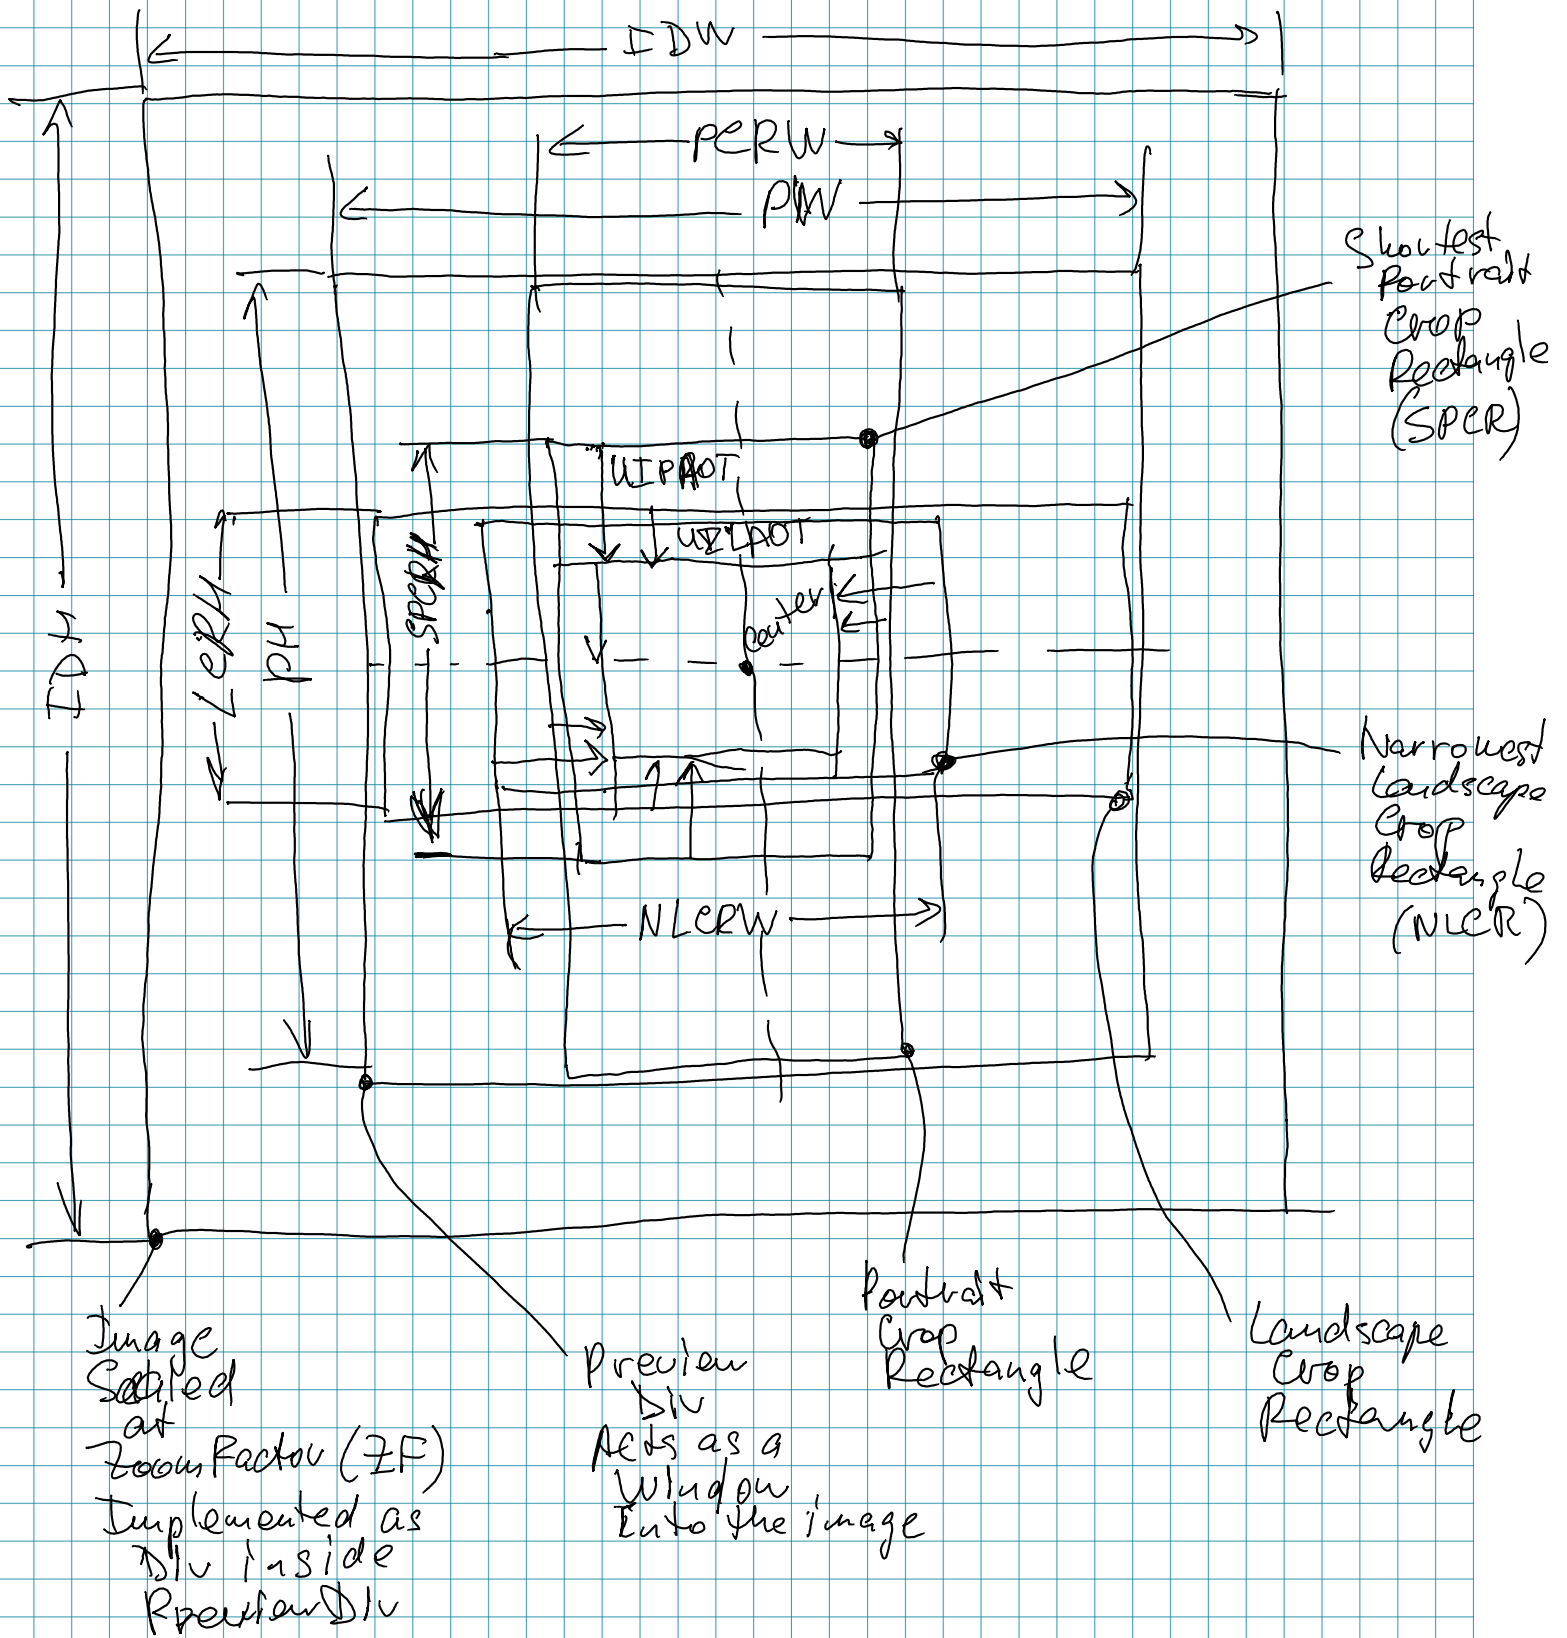 IDW
PCRW
PW
Shortest
Portrait
Crop
Rectangle
(SPCR)
UIPAOT
UILAOT
SPCRH
LCRH
PH
IDH
Center
Narrowest
Landscape
Crop
Rectangle
(NLCR)
NLCRW
Image
Scaled
at
ZoomFactor (ZF)
Implemented as
Div inside
PreviewDiv
Preview
Div
Acts as a
Window
Into the image
Portrait
Crop
Rectangle
Landscape
Crop
Rectangle